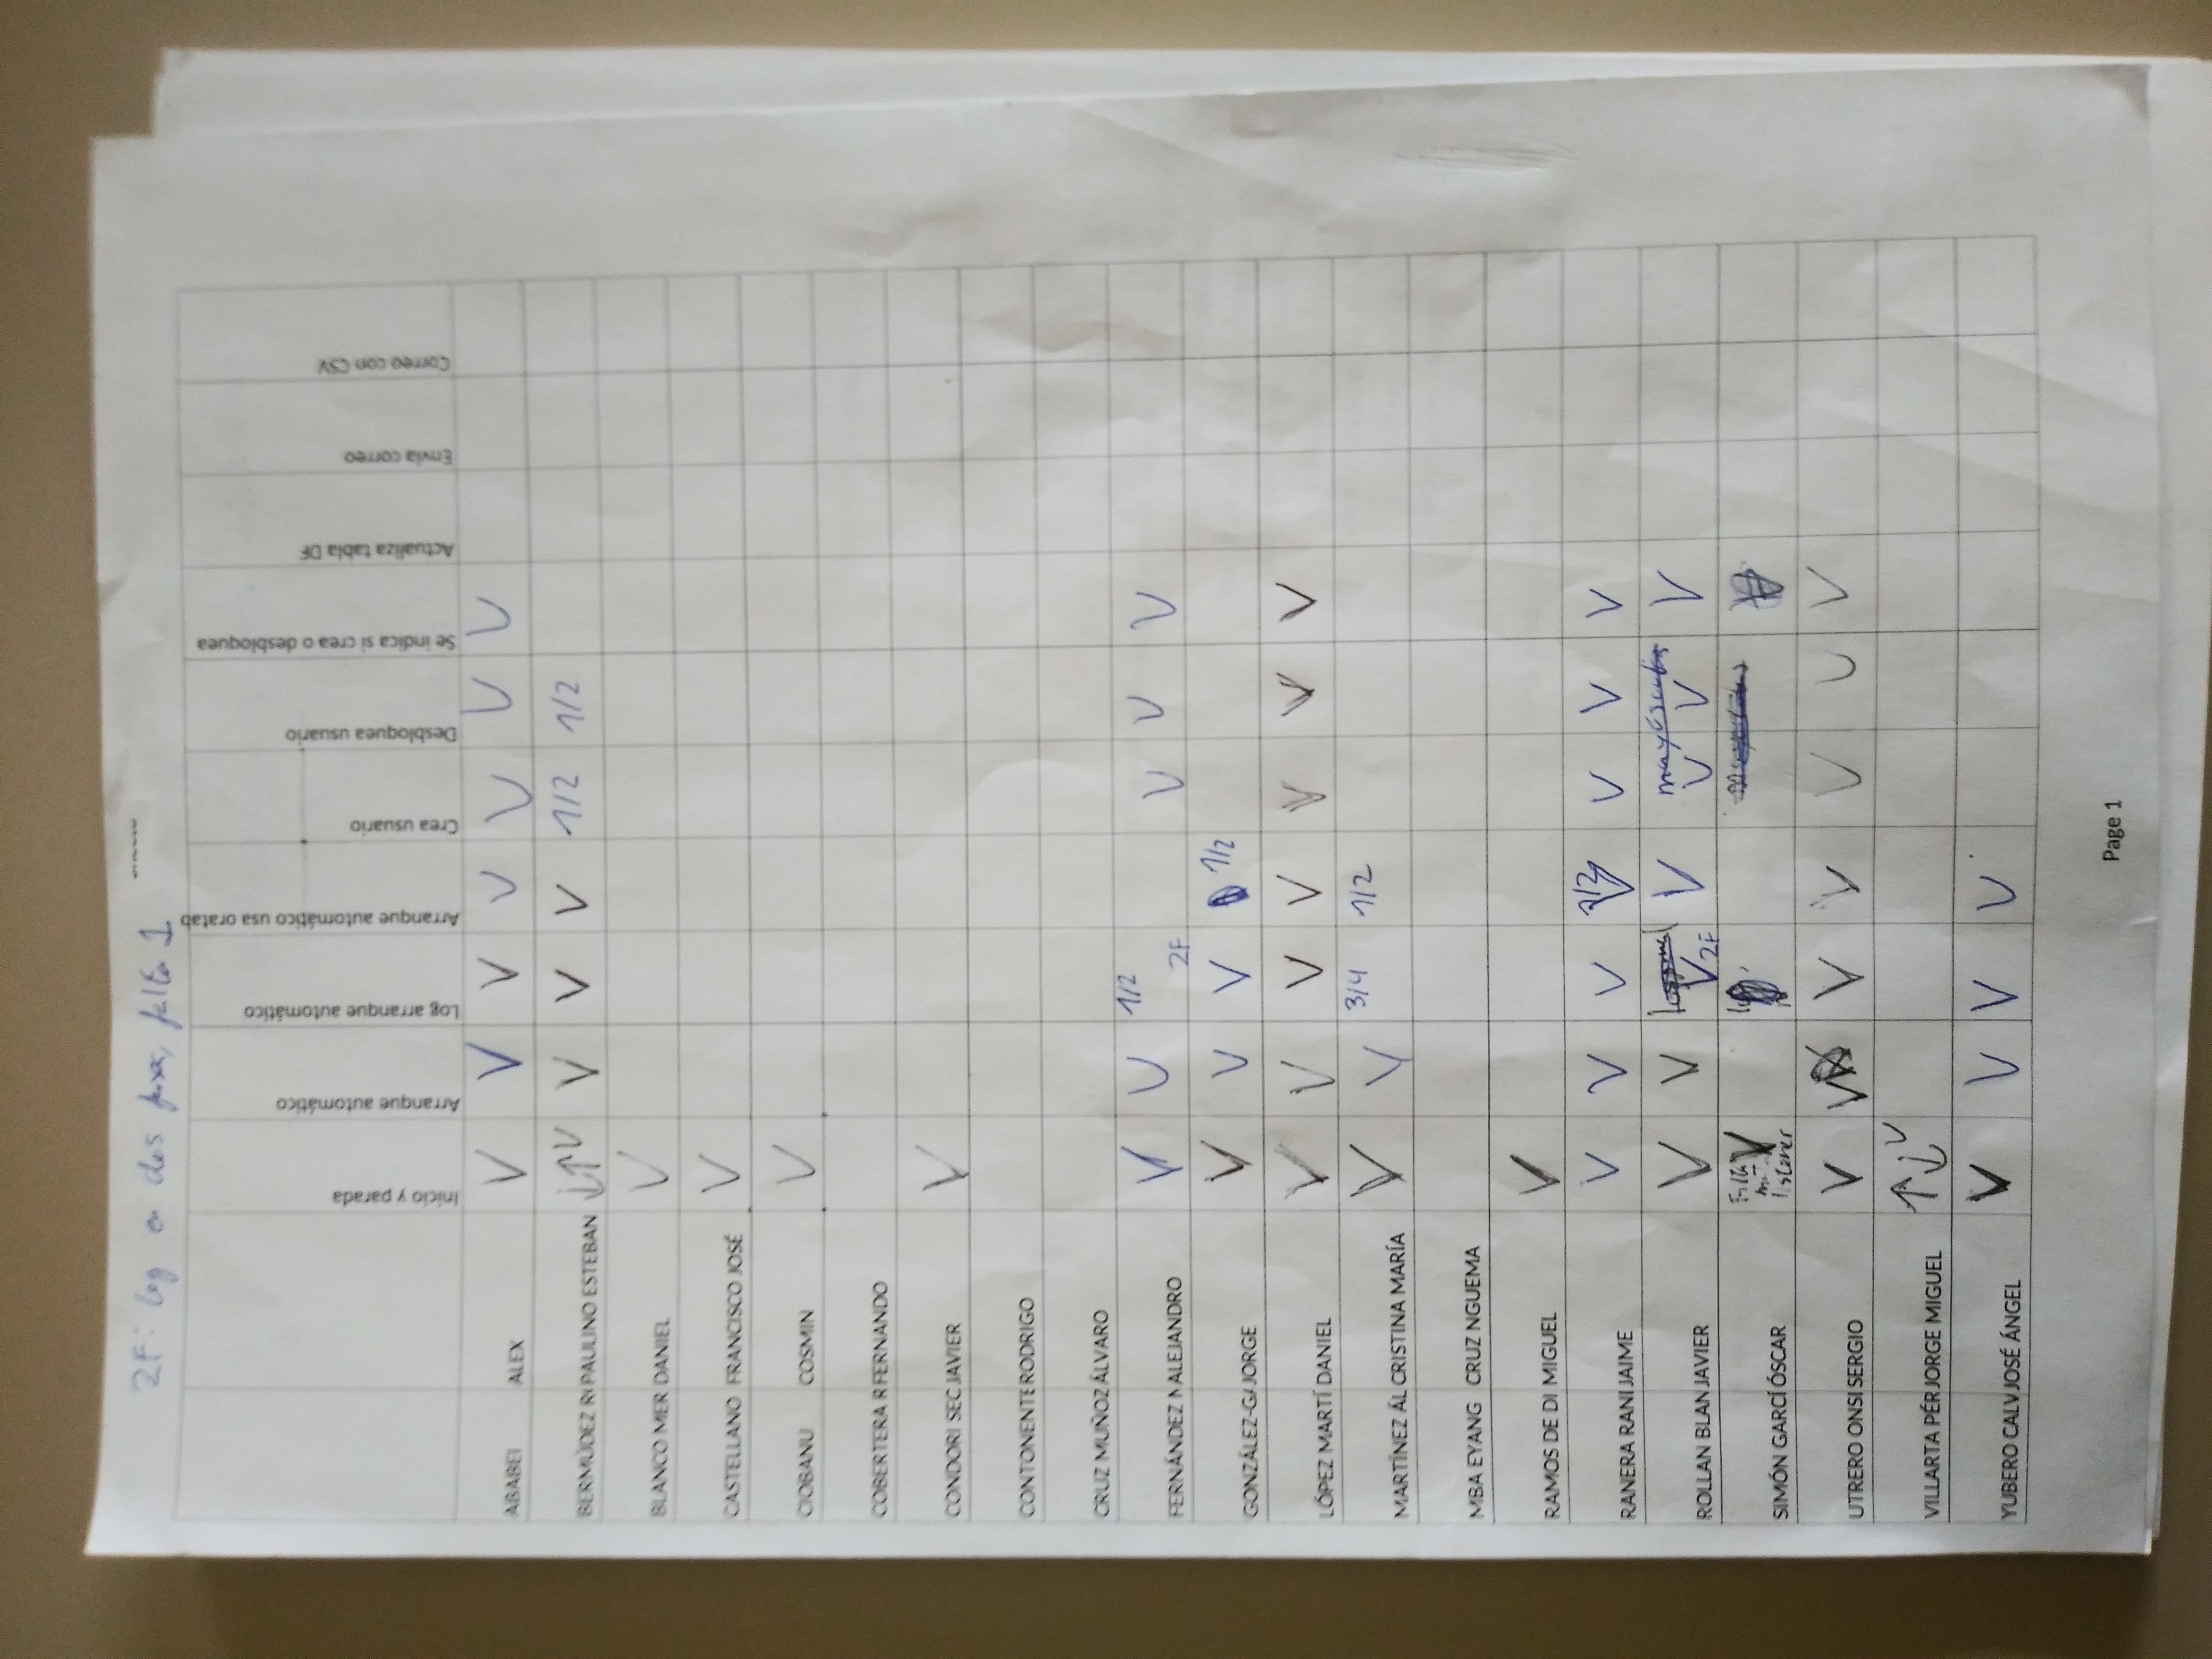 2F: log en dos fases, falta 1
Inicio y parada
Arranque automático
Log arranque automático
Arranque automático usa oratab
Crea usuario
Desbloquea usuario
Se indica si crea o desbloquea
Actualiza tabla DF
Envía correo
Correo con CSV
ABABEI ALEX V V V V V V V
BERMÚDEZ R PAULINO ESTEBAN ↓↑V V V V 1/2 1/2
BLANCO MER DANIEL V
CASTELLANO FRANCISCO JOSÉ V
CIOBANU COSMIN V
COBERTERA R FERNANDO
CONDORI SEC JAVIER V
CONTONENTE RODRIGO
CRUZ MUÑOZ ÁLVARO
FERNÁNDEZ M ALEJANDRO V V 1/2 2F V V V
GONZÁLEZ-GA JORGE V V V 1/2
LÓPEZ MARTÍ DANIEL V V V V V V V
MARTÍNEZ ÁL CRISTINA MARÍA V V 3/4 1/2
MBA EYANG CRUZ NGUEMA
RAMOS DE DI MIGUEL V
RANERA RANI JAIME V V V V V V V
ROLLAN BLAN JAVIER V V V 2F V mayusculas V V V
SIMÓN GARCÍ ÓSCAR Falta V listener
UTRERO ONSI SERGIO V V V V V V V
VILLARTA PÉR JORGE MIGUEL ↑↓V
YUBERO CALV JOSÉ ÁNGEL V V V V
Page 1